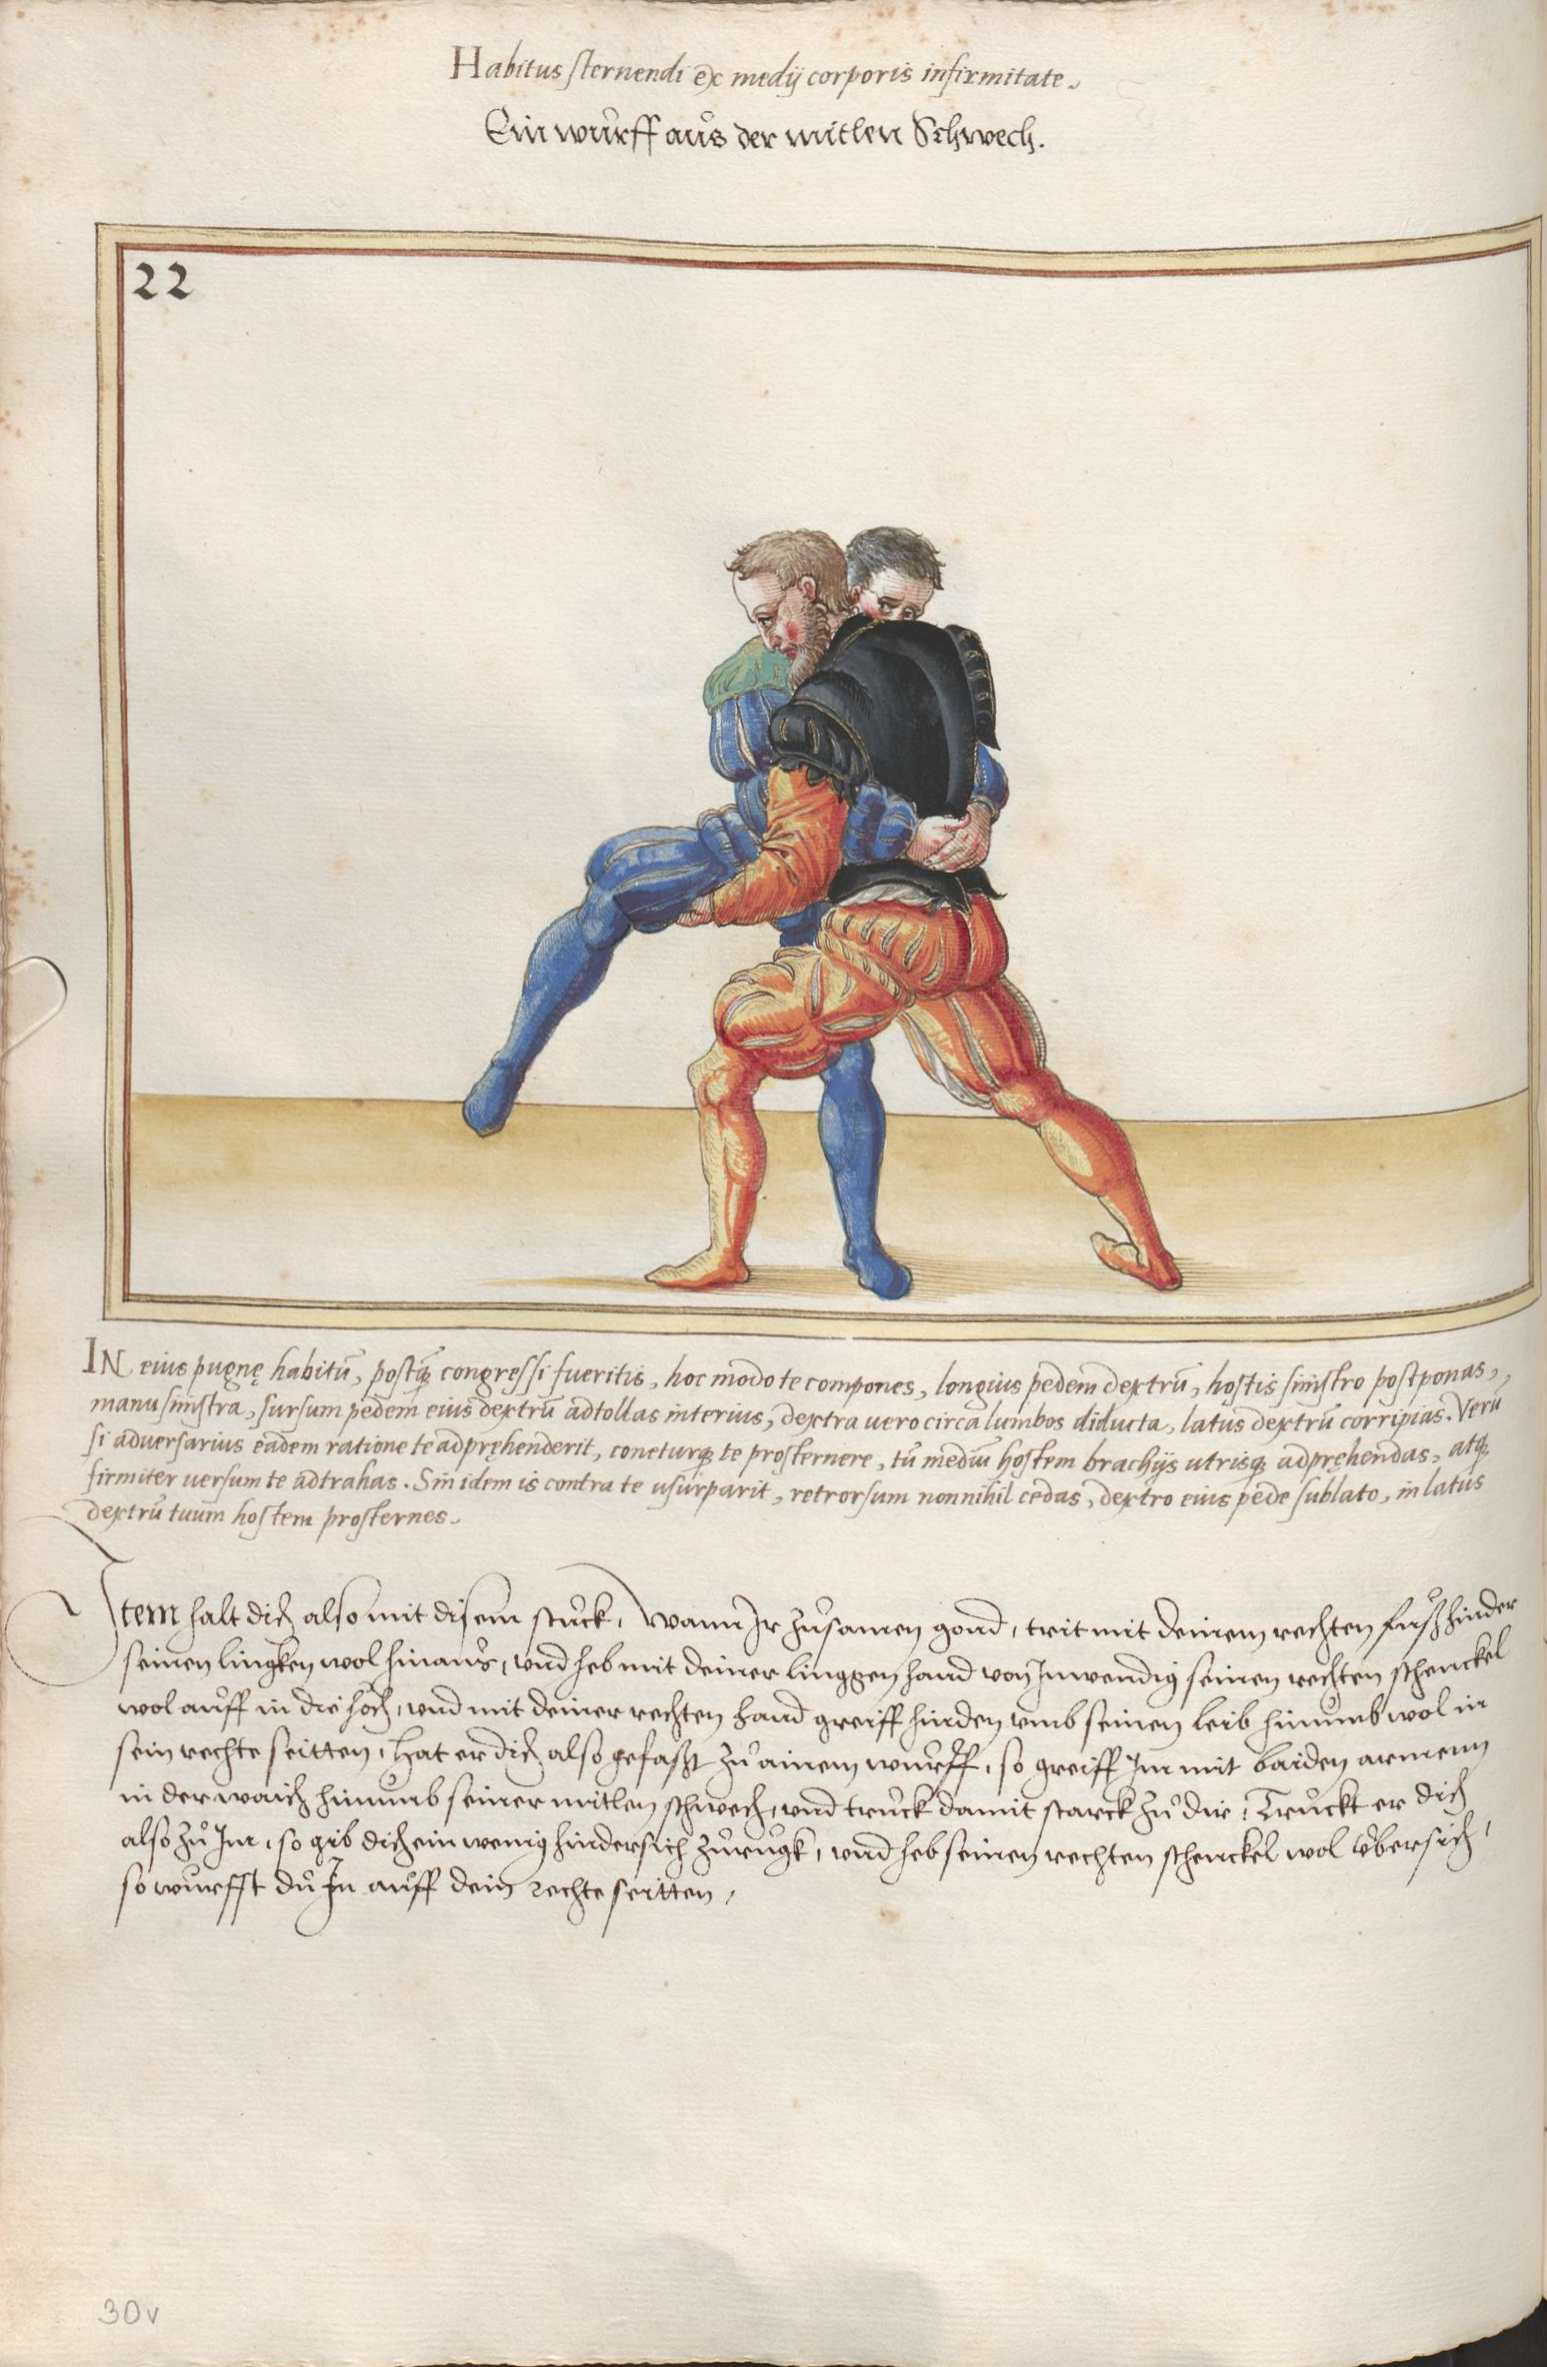 Habitus sternendi ex medij corporis infirmitate.
Ein wůrff aůs der mitlen Schwech.
22
IN eius pugnę habitū, postq̄ congressi fueritis, hoc modo te compones, longius pedem dextrū, hostis sinistro postponas,
manu sinistra, sursum pedem eius dextrū adtollas interius, dextra uero circa lumbos diducta, latus dextrū corripias. Verū
si aduersarius eadem ratione te adpręhenderit, coneturq; te prosternere, tū mediū hostem brachijs utrisq; adpręhendas, atq;
firmiter uersum te adtrahas. Sin idem is contra te usurparit, retrorsum nonnihil cedas, dextro eius pede sublato, in latus
dextrū tuum hostem prosternes.
Item halt dich also mit disem stuck, wann Ir zůsamen gond, trit mit deinem rechten fůß hinder
seinen lingken wol hinaůs, vnd heb mit deiner linggen hand von Inwendig seinen rechten schenckel
wol aůff in die höch, vnd mit deiner rechten hand greiff hinden vmb seinen leib hinumb wol in
sein rechte seitten, hat er dich also gefaßt zů ainem wůrff, so greiff Im mit baiden armenn
in der waich hinumb seiner mitlen schwech, vnd truck damit starck zů dir, Truckt er dich
also zů Im, so gib dich ein wenig hindersich zůrugk, vnd heb seinen rechten schenckel wol vbersich,
so wurffst dů In aůff dein rechte seitten,
30v